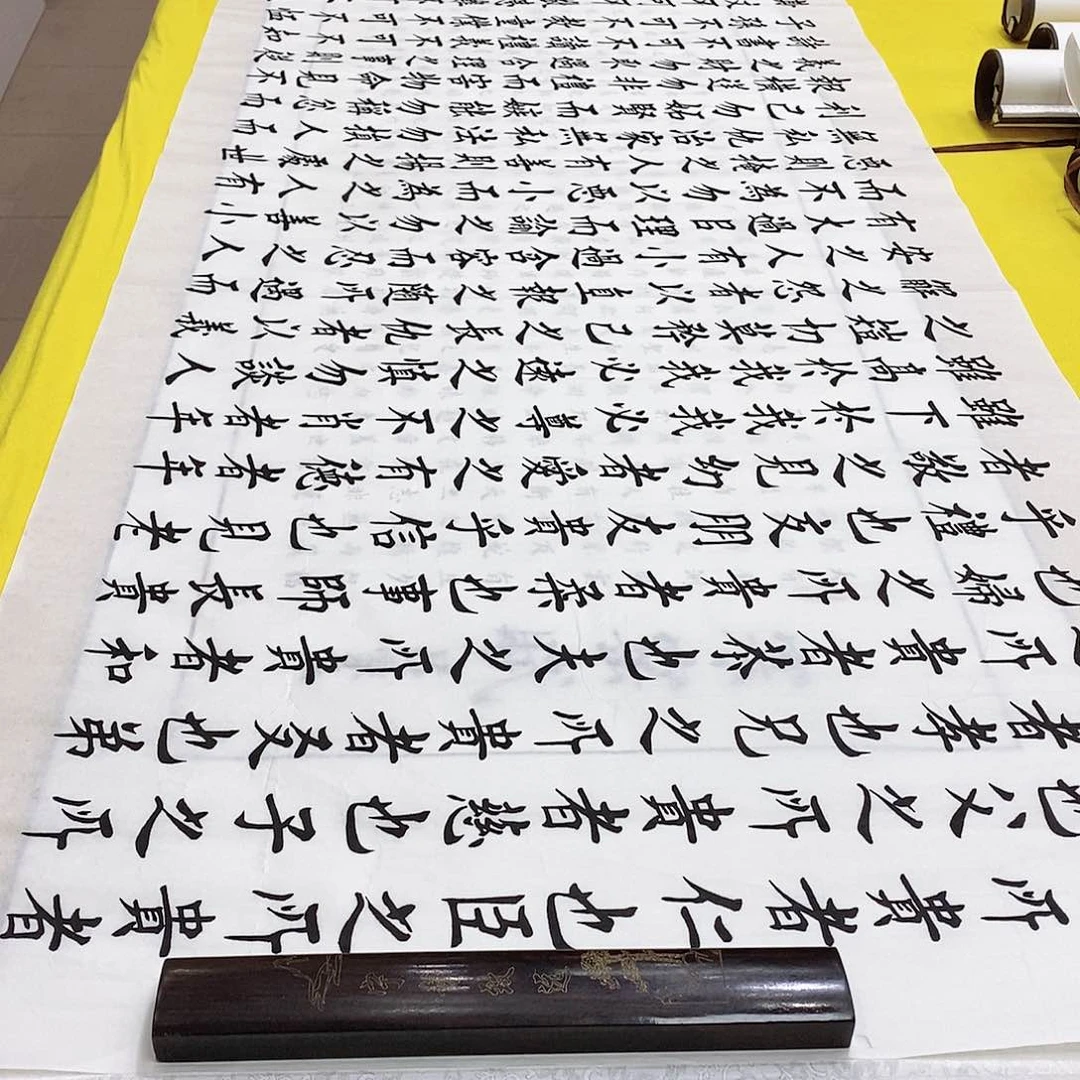 所貴者仁也臣之所貴者
也父之所貴者慈也子之所
者孝也兄之所貴者友也弟
之所貴者恭也夫之所貴者和
也婦之所貴者柔也事師長貴
乎禮也交朋友貴乎信也見老
者敬之見幼者愛之有德者年
雖下於我我必尊之不肖者年
雖高於我我必遠之慎勿談人
之短切莫矜己之長仇者以義
解之怨者以直報之隨所遇而
安之人有小過含容而忍之人
有大過以理而諭之勿以善小
而不為勿以惡小而為之人有
惡則掩之人有善則揚之處世
無私仇治家無私法勿損人而
利己勿妒賢而嫉能勿稱忿而
報橫逆勿非禮而害物命見不
義之財勿取遇合理之事則從
詩書不可不讀禮義不可不知
子孫不可不教童僕不可不恤